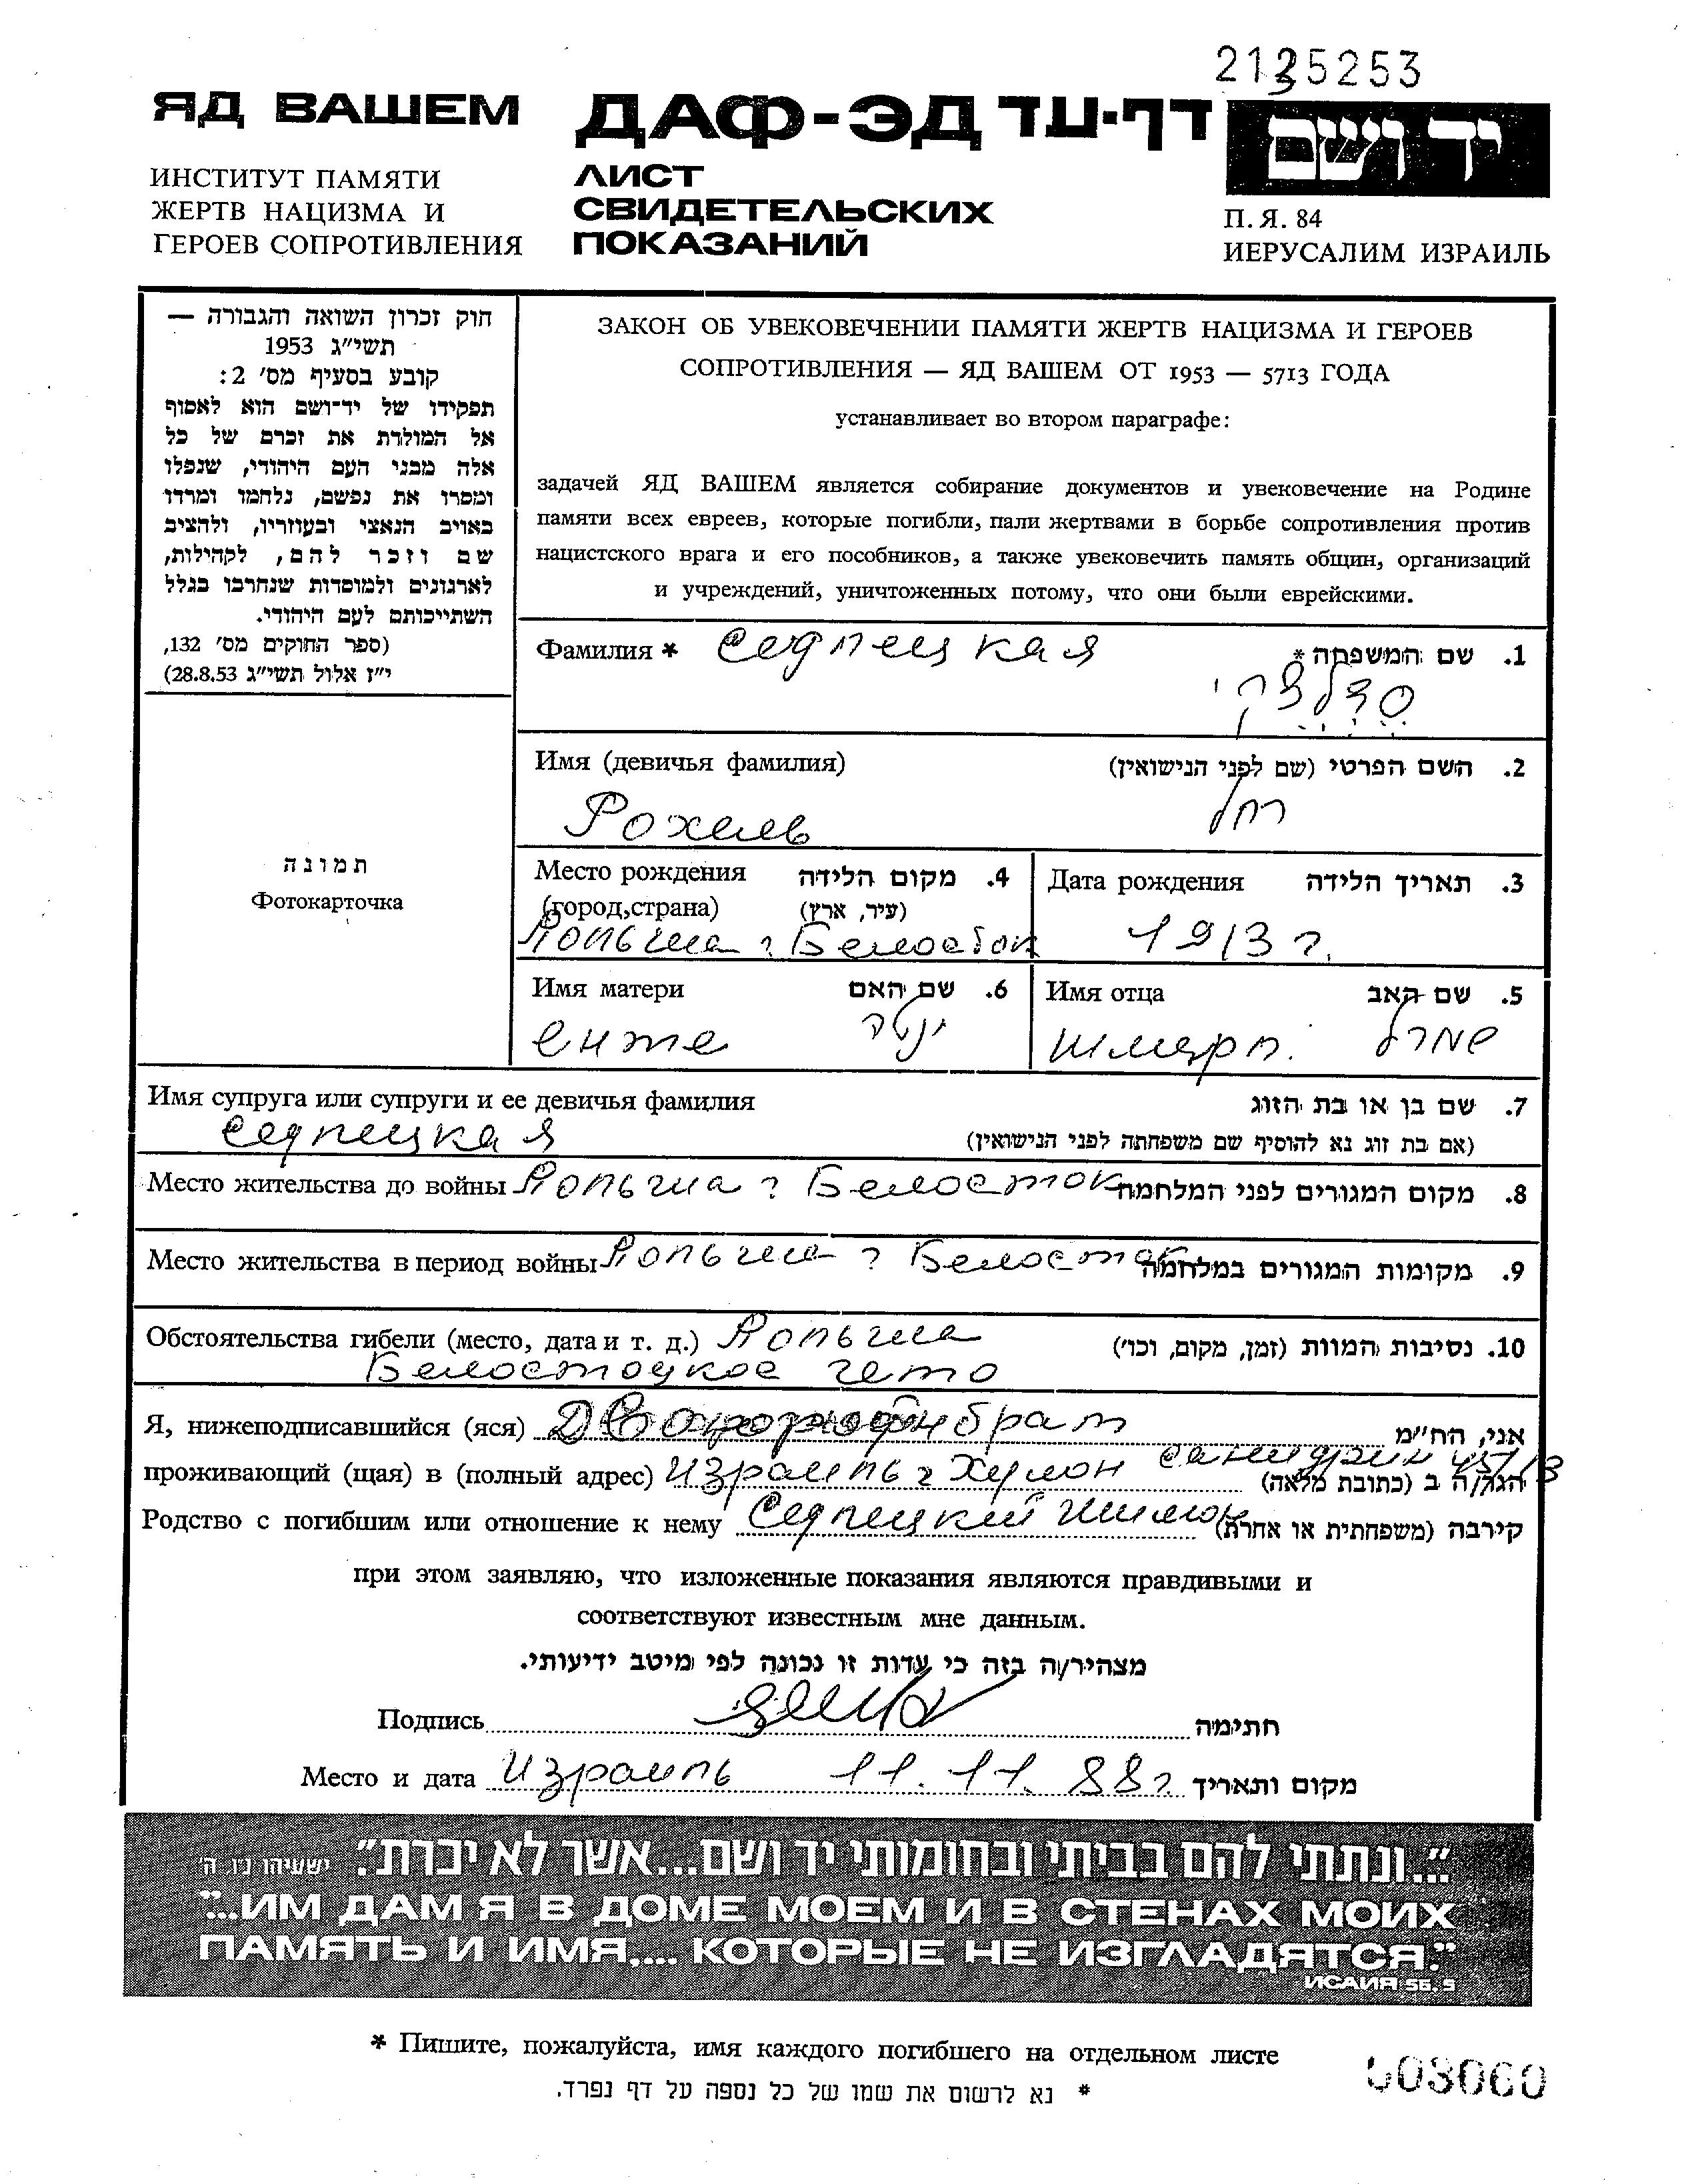 2135253
ЯД ВАШЕМ
ДАФ-ЭД דף-עד
יד ושם
ИНСТИТУТ ПАМЯТИ
ЖЕРТВ НАЦИЗМА И
ГЕРОЕВ СОПРОТИВЛЕНИЯ
ЛИСТ
СВИДЕТЕЛЬСКИХ
ПОКАЗАНИЙ
П. Я. 84
ИЕРУСАЛИМ ИЗРАИЛЬ
חוק זכרון השואה והגבורה —
תשי"ג 1953
קובע בסעיף מס' 2:
תפקידו של יד-ושם הוא לאסוף
אל המולדת את זכרם של כל
אלה מבני העם היהודי, שנפלו
ומסרו את נפשם, נלחמו ומרדו
באויב הנאצי ובעוזריו, ולהציב
שם וזכר להם, לקהילות,
לארגונים ולמוסדות שנחרבו בגלל
השתייכותם לעם היהודי.
(ספר החוקים מס' 132,
י"ז אלול תשי"ג 28.8.53)
ЗАКОН ОБ УВЕКОВЕЧЕНИИ ПАМЯТИ ЖЕРТВ НАЦИЗМА И ГЕРОЕВ
СОПРОТИВЛЕНИЯ — ЯД ВАШЕМ ОТ 1953 — 5713 ГОДА
устанавливает во втором параграфе:
задачей ЯД ВАШЕМ является собирание документов и увековечение на Родине
памяти всех евреев, которые погибли, пали жертвами в борьбе сопротивления против
нацистского врага и его пособников, а также увековечить память общин, организаций
и учреждений, уничтоженных потому, что они были еврейскими.
Фамилия * Седлецкая 1. שם המשפחה *
סדלצקי
Имя (девичья фамилия) 2. השם הפרטי (שם לפני הנישואין)
Рохель רחל
תמונה
Фотокарточка
Место рождения 4. מקום הלידה
(город,страна) (עיר, ארץ)
Польша г Белосток
Дата рождения 3. תאריך הלידה
1913 г.
Имя матери 6. שם האם
Енте ינטה
Имя отца 5. שם האב
Шмерл. שמרל
Имя супруга или супруги и ее девичья фамилия 7. שם בן או בת הזוג
Седлецкая (אם בת זוג נא להוסיף שם משפחתה לפני הנישואין)
Место жительства до войны Польша г Белосток 8. מקום המגורים לפני המלחמה
Место жительства в период войны Польша г Белосток 9. מקומות המגורים במלחמה
Обстоятельства гибели (место, дата и т. д.) Польша 10. נסיבות המוות (זמן, מקום, וכו')
Белостоцкое гето
Я, нижеподписавшийся (яся) брат אני, הח"מ
проживающий (щая) в (полный адрес) Израиль г Хулон Санидрин 45/13 הגר/ה ב (כתובת מלאה)
Родство с погибшим или отношение к нему Седлецкий Шимон קירבה (משפחתית או אחרת)
при этом заявляю, что изложенные показания являются правдивыми и
соответствуют известным мне данным.
מצהיר/ה בזה כי עדות זו נכונה לפי מיטב ידיעותי.
Подпись חתימה
Место и дата Израиль 11.11.88г. מקום ותאריך
"...ונתתי להם בביתי ובחומותי יד ושם...אשר לא יכרת". ישעיהו נ"ו, ה'
"...ИМ ДАМ Я В ДОМЕ МОЕМ И В СТЕНАХ МОИХ
ПАМЯТЬ И ИМЯ,... КОТОРЫЕ НЕ ИЗГЛАДЯТСЯ."
ИСАИЯ 56,5
* Пишите, пожалуйста, имя каждого погибшего на отдельном листе
* נא לרשום את שמו של כל נספה על דף נפרד.
003060